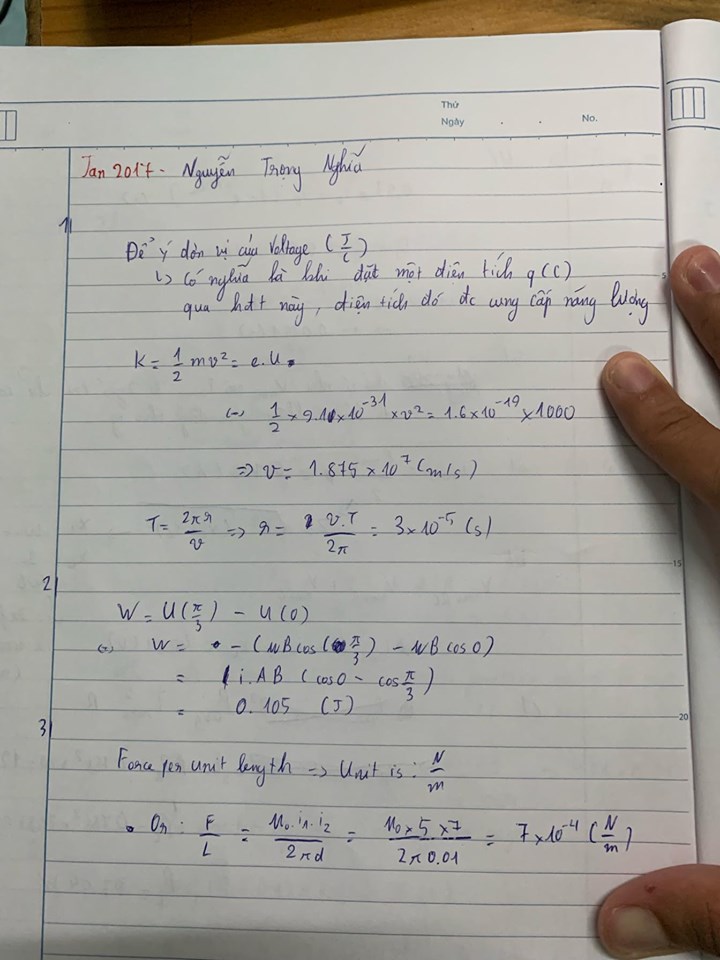 Thứ
Ngày . . No.
Jan 2017 - Nguyễn Trọng Nghĩa
1
Để ý đơn vị của Voltage (J/C)
↳ Có nghĩa là khi đặt một điện tích q (C)
qua hđt này, điện tích đó đc cung cấp năng lượng
K = 1/2 mv² = e.U.
(-) 1/2 × 9.1 × 10⁻³¹ × v² = 1.6 × 10⁻¹⁹ × 1000
⇒ v = 1.875 × 10⁷ (m/s)
T = 2πr/v ⇒ r = v.T/2π = 3 × 10⁻⁵ (s)
2
W = U(π/3) - U(0)
(-) W = - (μB cos(π/3) - μB cos 0)
= i.AB (cos 0 - cos π/3)
= 0.105 (J)
3
Force per unit length ⇒ Unit is: N/m
• Or: F/L = μ₀.i₁.i₂/2πd = μ₀ × 5 × 7/2π 0.01 = 7 × 10⁻⁴ (N/m)
5
15
20